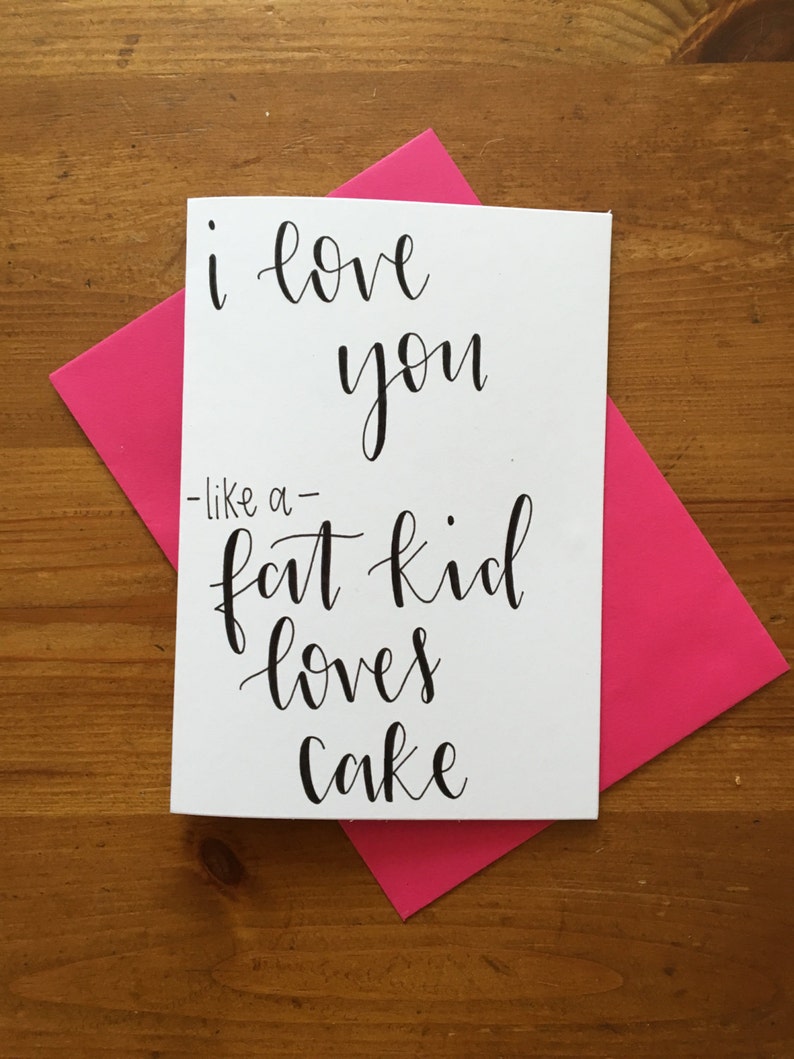 i love
you
-like a-
fat kid
loves
cake